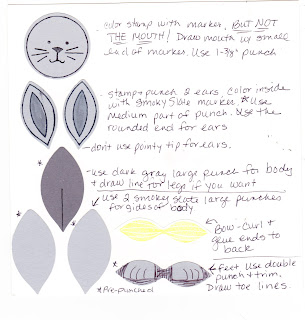 color stamp with marker, BUT NOT
THE MOUTH! Draw mouth w/ small
end of marker. Use 1-3/8" punch
stamp + punch 2 ears, color inside
with smoky slate marker * Use
medium part of punch. Use the
rounded end for ears
- don't use pointy tip for ears.
* - use dark gray large punch for body
+ draw line for legs if you want
* use 2 smokey slate large punches
for sides of body
Bow-Curl +
glue ends to
back
feet use double
punch + trim.
Draw toe lines.
* Pre-punched